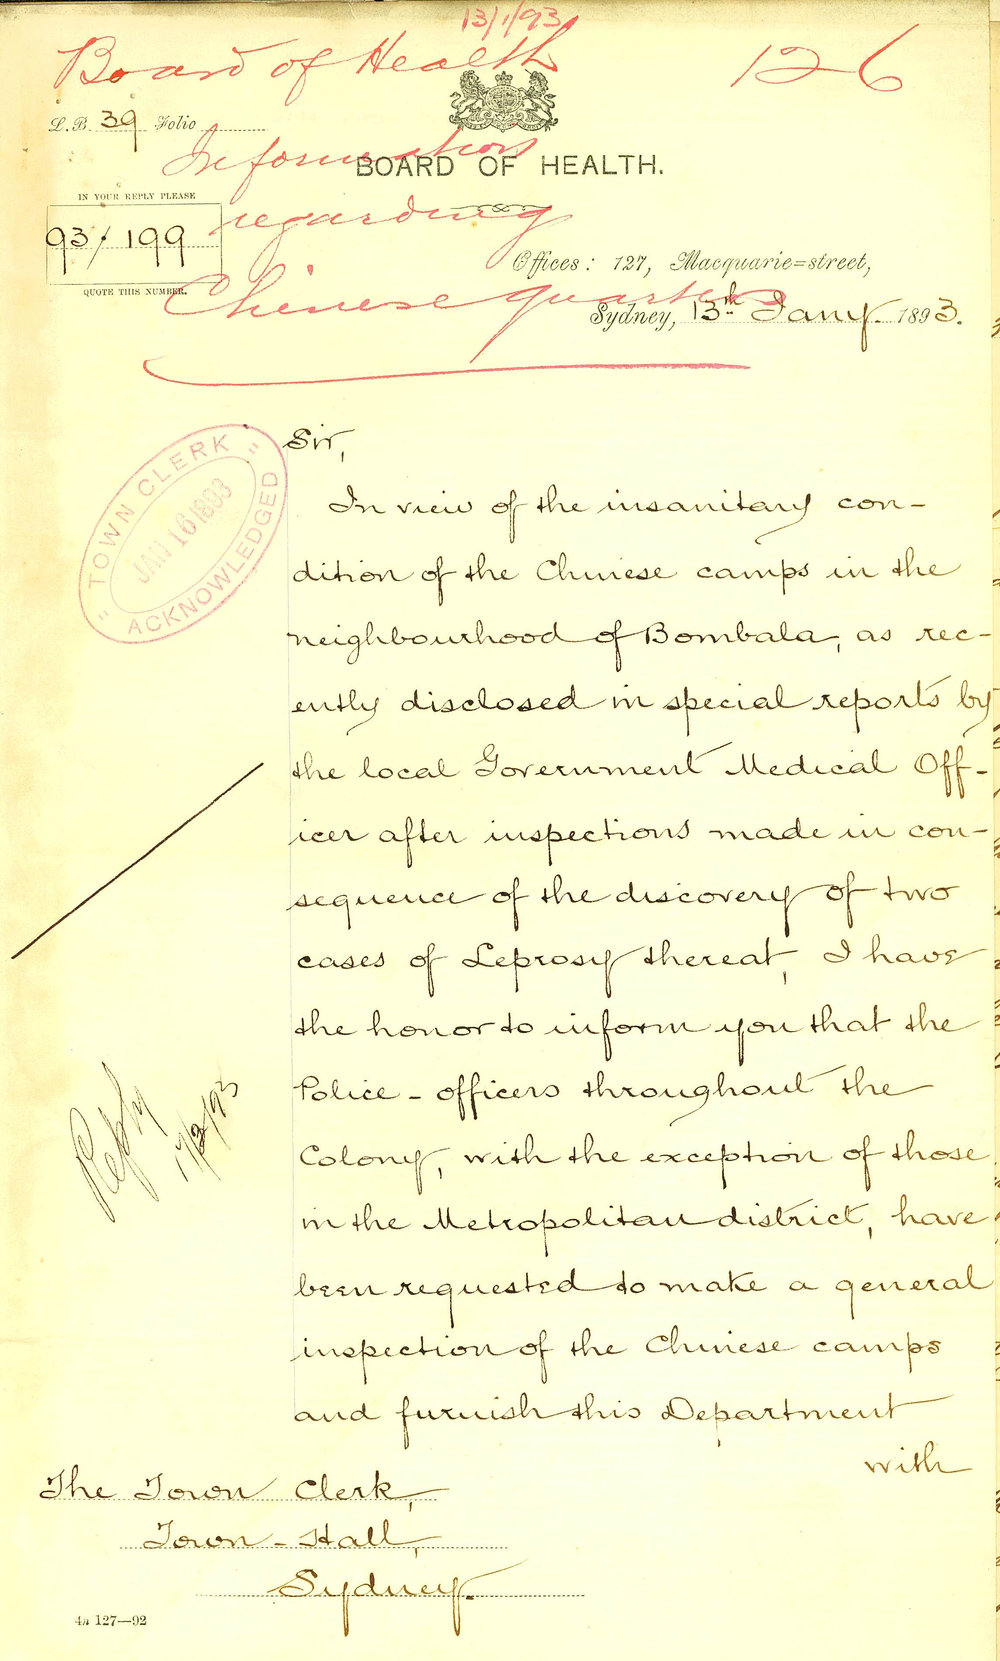 13/1/93
Board of Health
126
L.B. 39 Folio
Information
BOARD OF HEALTH.
IN YOUR REPLY PLEASE
regarding
93/199
Offices: 127, Macquarie=street,
QUOTE THIS NUMBER.
Chinese quarters
Sydney, 13th Jany. 1893.
"TOWN CLERK"
JAN 16 1893
ACKNOWLEDGED
Sir,
In view of the insanitary con-
dition of the Chinese camps in the
neighbourhood of Bombala, as rec-
ently disclosed in special reports by
the local Government Medical Off-
icer after inspections made in con-
sequence of the discovery of two
cases of Leprosy thereat, I have
the honor to inform you that the
Police-officers throughout the
Colony, with the exception of those
in the Metropolitan district, have
been requested to make a general
inspection of the Chinese camps
and furnish this Department
with
Reply
17/3/93
The Town Clerk,
Town-Hall,
Sydney.
4a 127—92